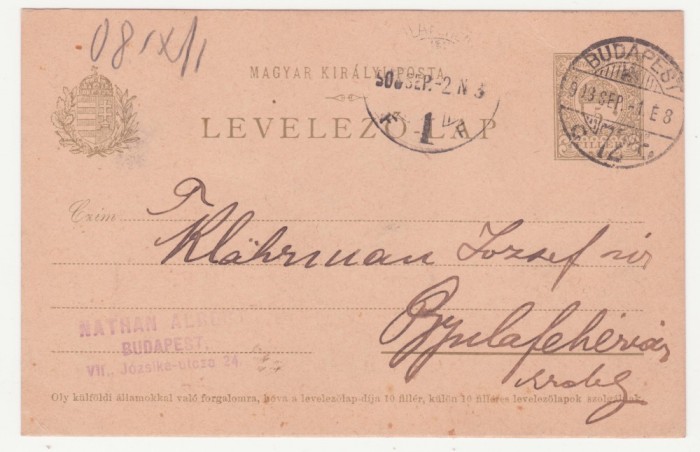 08 IX/1
MAGYAR KIRÁLYI POSTA
LEVELEZŐ-LAP
BUDAPEST
908 SEP.-1 É 8
72
908 SEP.-2 N 3
1
FILLÉR
Czim
T.
Klährman József úr
Gyulafehérvár
Erdély
NATHAN
BUDAPEST,
VII., Józsika-utcza 24.
Oly külföldi államokkal való forgalomra, hova a levelezőlap-díja 10 fillér, külön 10 filléres levelezőlapok szolgálnak.